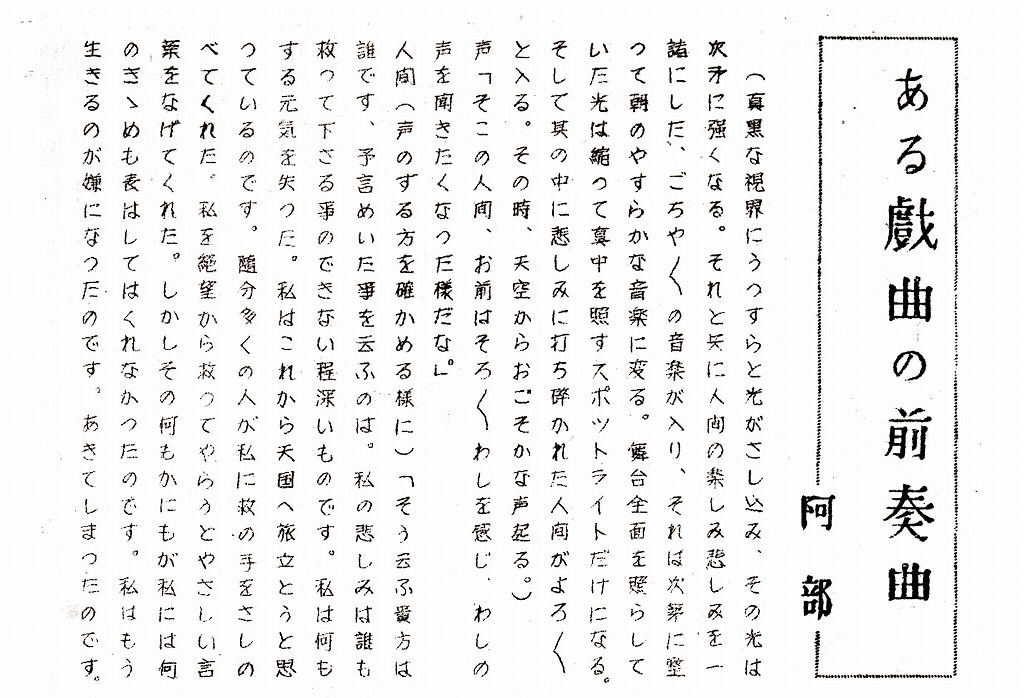 ある戯曲の前奏曲
阿部
(真黒な視界にうつすらと光がさし込み、その光は
次才に強くなる。それと共に人間の楽しみ悲しみを一
諸にした、ごちや〱の音楽が入り、それは次第に整
つて朝のやすらかな音楽に変る。舞台全面を照らして
いた光は縮つて真中を照すスポツトライトだけになる。
そして其の中に悲しみに打ち碎かれた人间がよろ〱
と入る。その時、天空からおごそかな声起る。)
声「そこの人间、お前はそろ〱わしを感じ、わしの
声を闻きたくなつた様だな」。
人间(声のする方を確かめる様に)「そう云ふ貴方は
誰です、予言めいた事を云ふのは。私の悲しみは誰も
救つて下さる事のできない程深いものです。私は何も
する元気を失つた。私はこれから天国へ旅立とうと思
つているのです。随分多くの人が私に救の手をさしの
べてくれた。私を絶望から救つてやらうとやさしい言
葉をなげてくれた。しかしその何もかにもが私には何
のきゝめも表はしてはくれなかつたのです。私はもう
生きるのが嫌になつたのです。あきてしまつたのです。